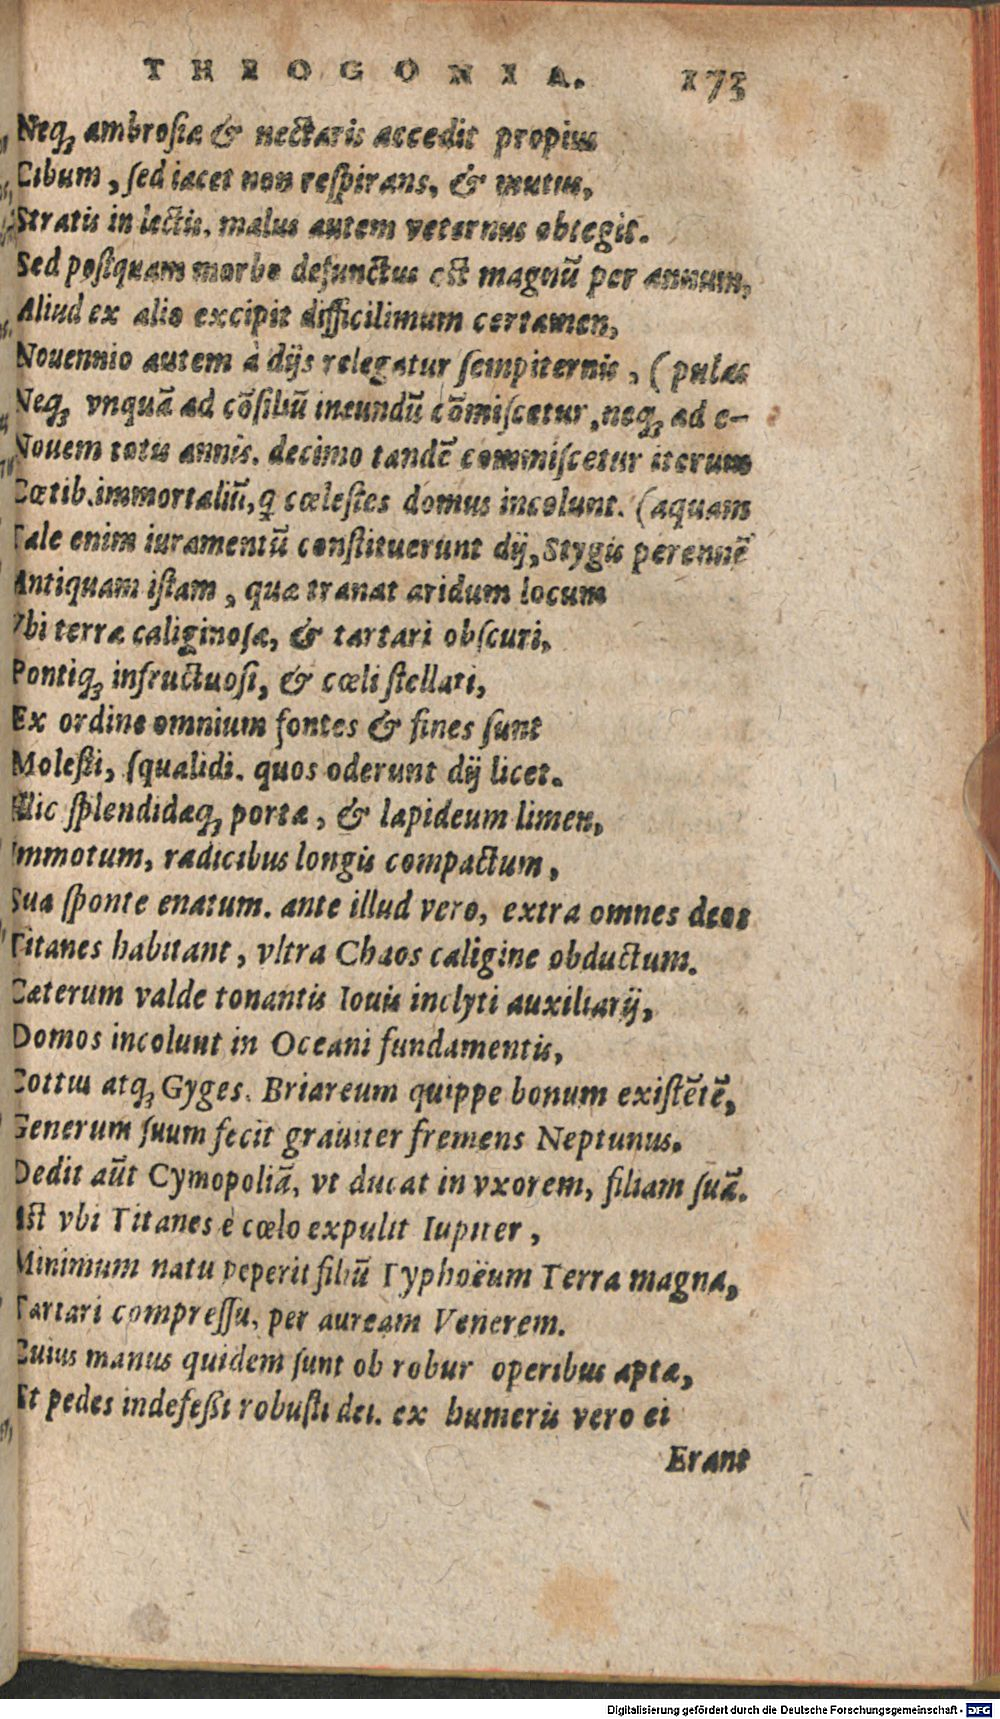 THEOGONIA. 173
Neq; ambrosiæ & nectaris accedit propius
Cibum, sed iacet non respirans, & mutus,
Stratis in lectis, malus autem veternus obtegit.
Sed postquam morbo defunctus est magnū per annum,
Aliud ex alio excipit difficilimum certamen,
Nouennio autem à dijs relegatur sempiternis, (pulas
Neq; vnquā ad cōsiliū ineundū cōmiscetur, neq; ad e-
Nouem totis annis. decimo tandē commiscetur iterum
Cœtib. immortaliū, q cœlestes domus incolunt. (aquam
Tale enim iuramentū constituerunt dij, Stygis perennē
Antiquam istam, quæ tranat aridum locum
Vbi terræ caliginosæ, & tartari obscuri,
Pontiq; infructuosi, & cœli stellati,
Ex ordine omnium fontes & fines sunt
Molesti, squalidi. quos oderunt dij licet.
Illic splendidæq; portæ, & lapideum limen,
Immotum, radicibus longis compactum,
Sua sponte enatum. ante illud vero, extra omnes deos
Titanes habitant, vltra Chaos caligine obductum.
Cæterum valde tonantis Iouis inclyti auxiliarij,
Domos incolunt in Oceani fundamentis,
Cottus atq; Gyges. Briareum quippe bonum existētē,
Generum suum fecit grauiter fremens Neptunus.
Dedit aūt Cymopoliā, vt ducat in vxorem, filiam suā.
Ast vbi Titanes è cœlo expulit Iupiter,
Minimum natu peperit filiū Typhoëum Terra magna,
Tartari compressu, per auream Venerem.
Cuius manus quidem sunt ob robur operibus aptæ,
Et pedes indefessi robusti dei. ex humeris vero ei
Erant
Digitalisierung gefördert durch die Deutsche Forschungsgemeinschaft - DFG